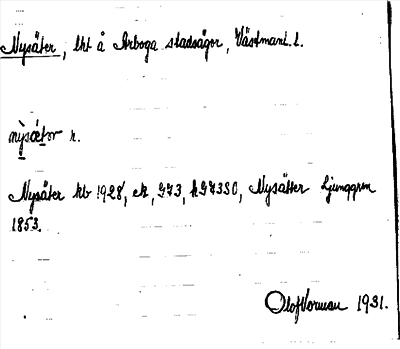 Nysäter, lht å Arboga stadsägor, Västmanl. l.
nỳsæ̀tər n.
Nysäter kb 1928, ek, G73, hG73SO, Nysätter Ljunggren
1853.
Olof Norman 1931.